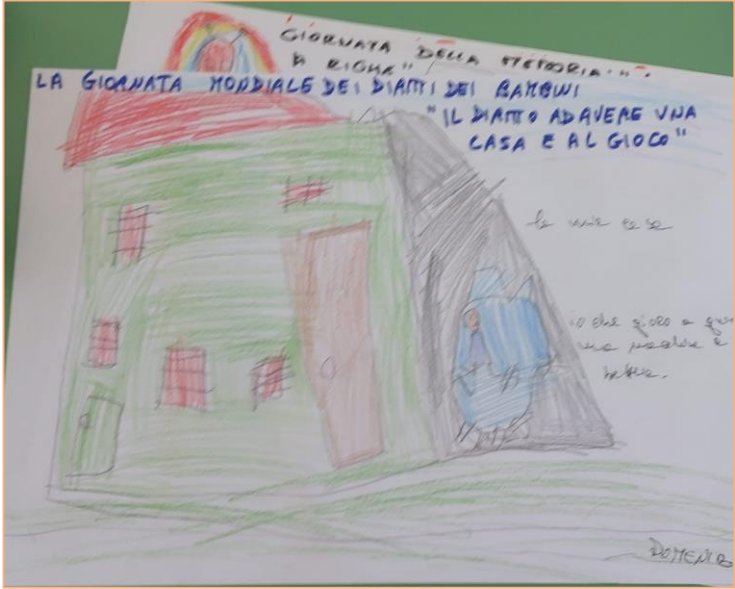 GIORNATA DELLA MEMORIA."
A RIGHE"
LA GIORNATA MONDIALE DEI DIRITTI DEI BAMBINI
"IL DIRITTO AD AVERE UNA
CASA E AL GIOCO"
la mia casa
io che gioco a
una macchina
DOMENIC